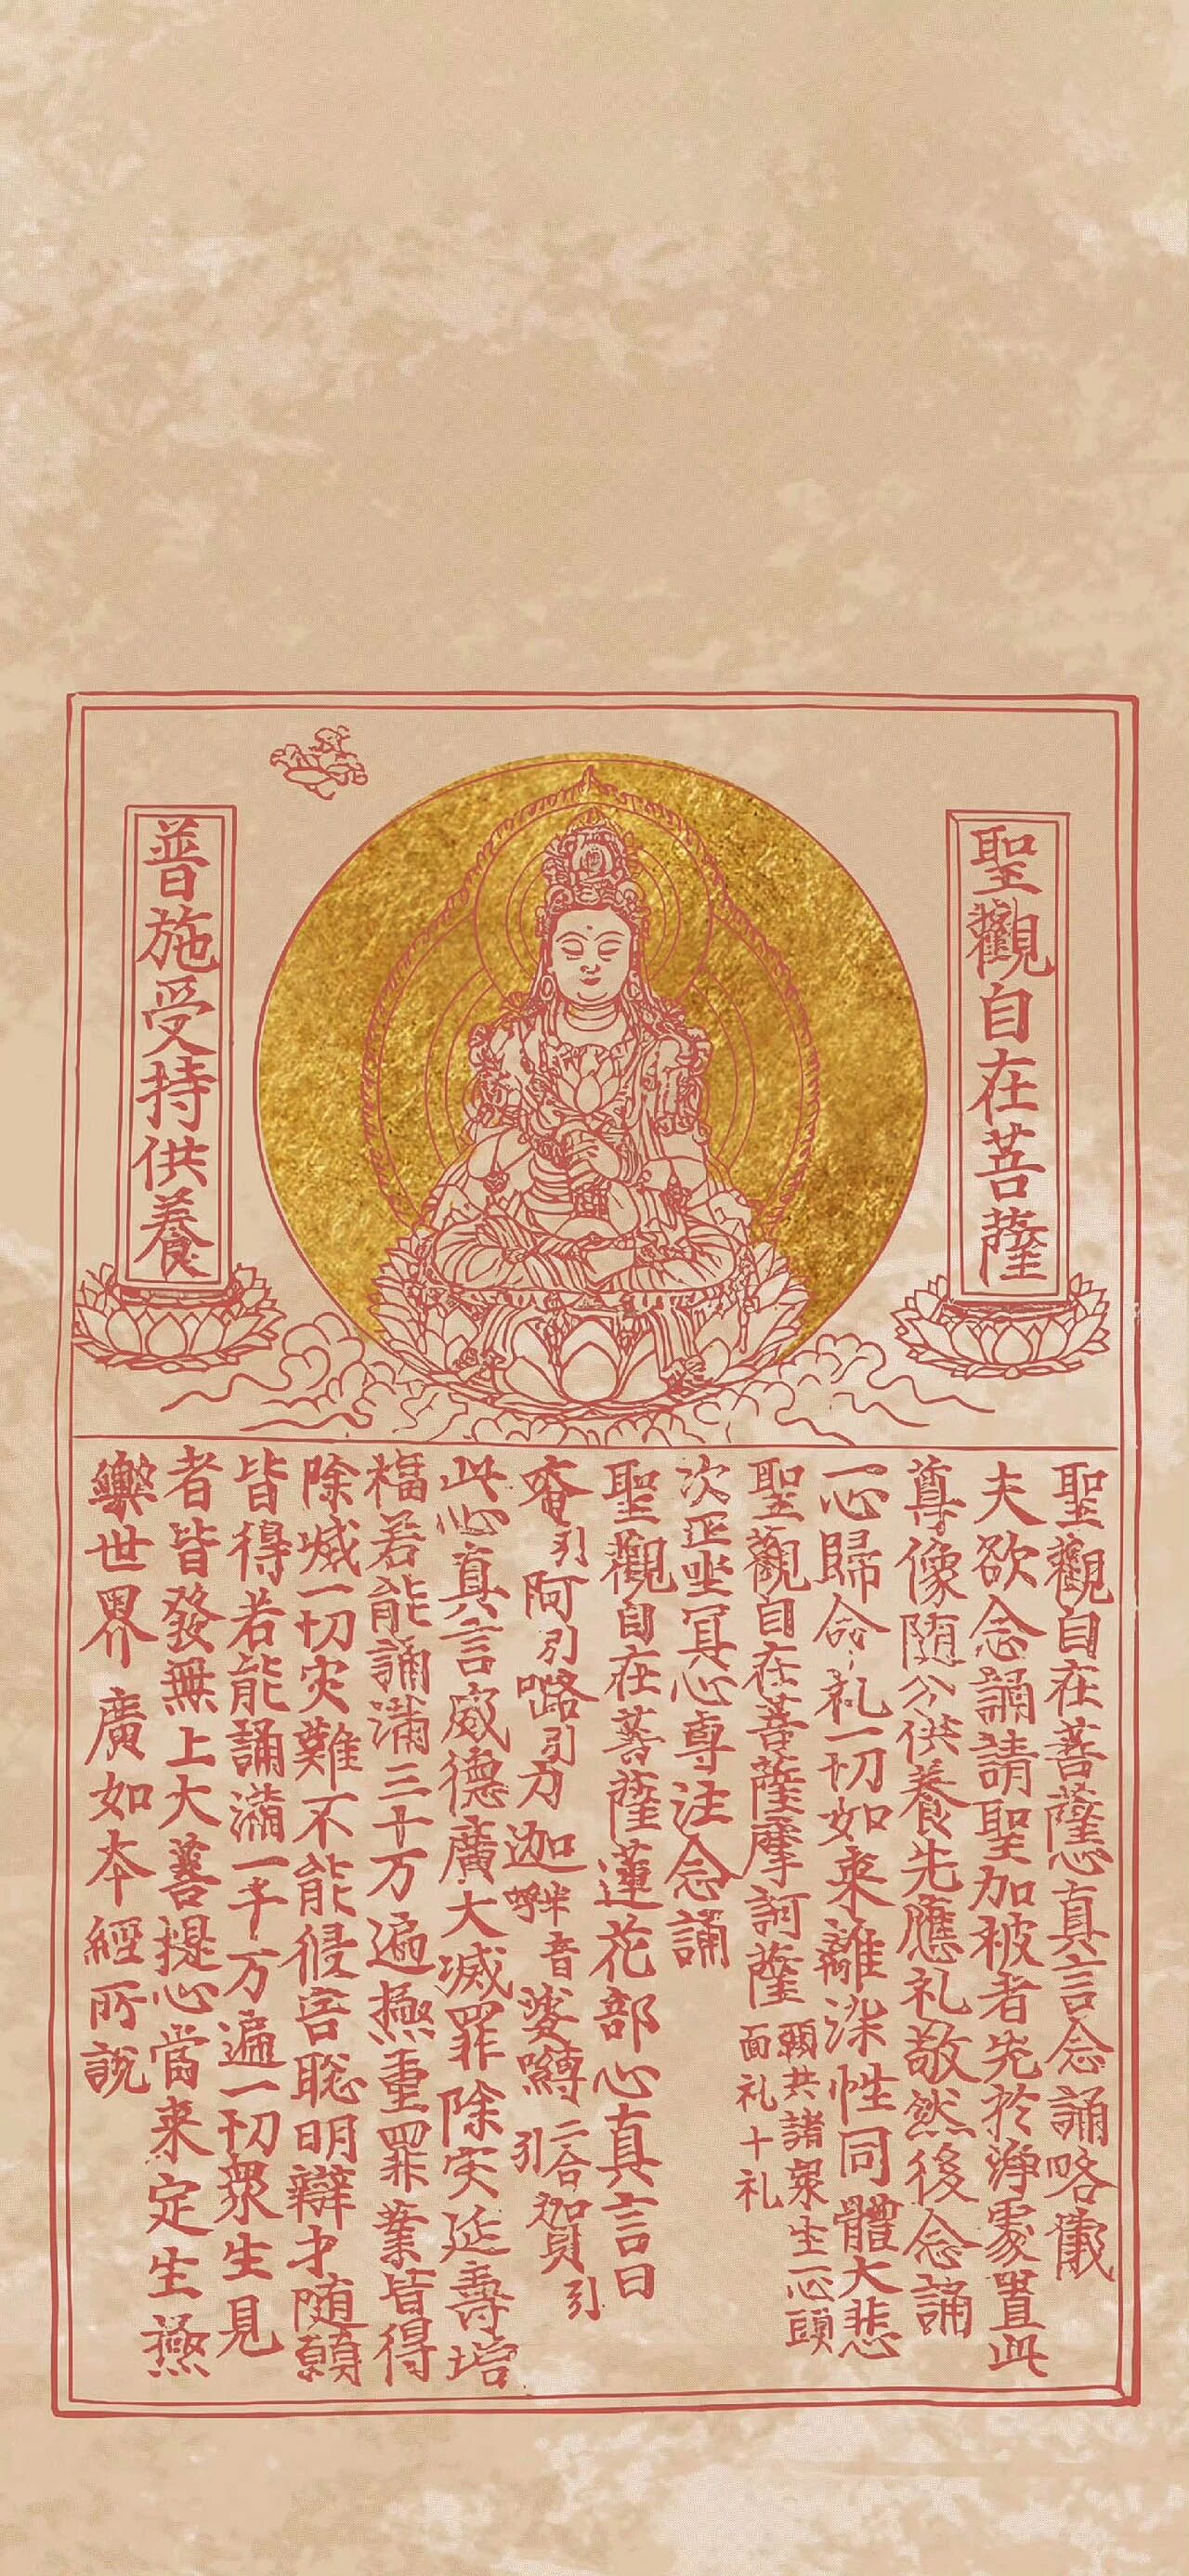 聖觀自在菩薩
普施受持供養
聖觀自在菩薩心真言念誦略儀
夫欲念誦請聖加被者先於淨處置此
尊像随分供養先應礼敬然後念誦
一心歸命礼一切如来離染性同體大悲
聖觀自在菩薩摩訶薩
願共諸衆生一心頭
面礼十礼
次正坐冥心專注念誦
聖觀自在菩薩蓮花部心真言曰
唵引阿引嚕引力迦半音娑嚩二合引賀引
此心真言威德廣大滅罪除灾延壽增
福若能誦滿三十万遍極重罪業皆得
除滅一切灾難不能侵害聡明辯才随願
皆得若能誦滿一千万遍一切衆生見
者皆發無上大菩提心當来定生極
樂世界廣如本經所說